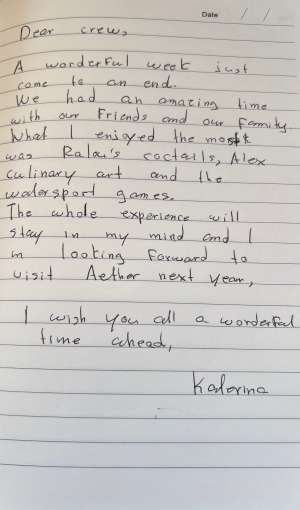 Date / /
Dear crew,
A wonderful week just
came to an end.
We had an amazing time
with our friends and our family.
What I enjoyed the most
was Ralou's coctails, Alex
culinary art and the
watersport games.
The whole experience will
stay in my mind and I
m looking forward to
visit Aether next year,
I wish you all a wonderful
time ahead,
Katerina